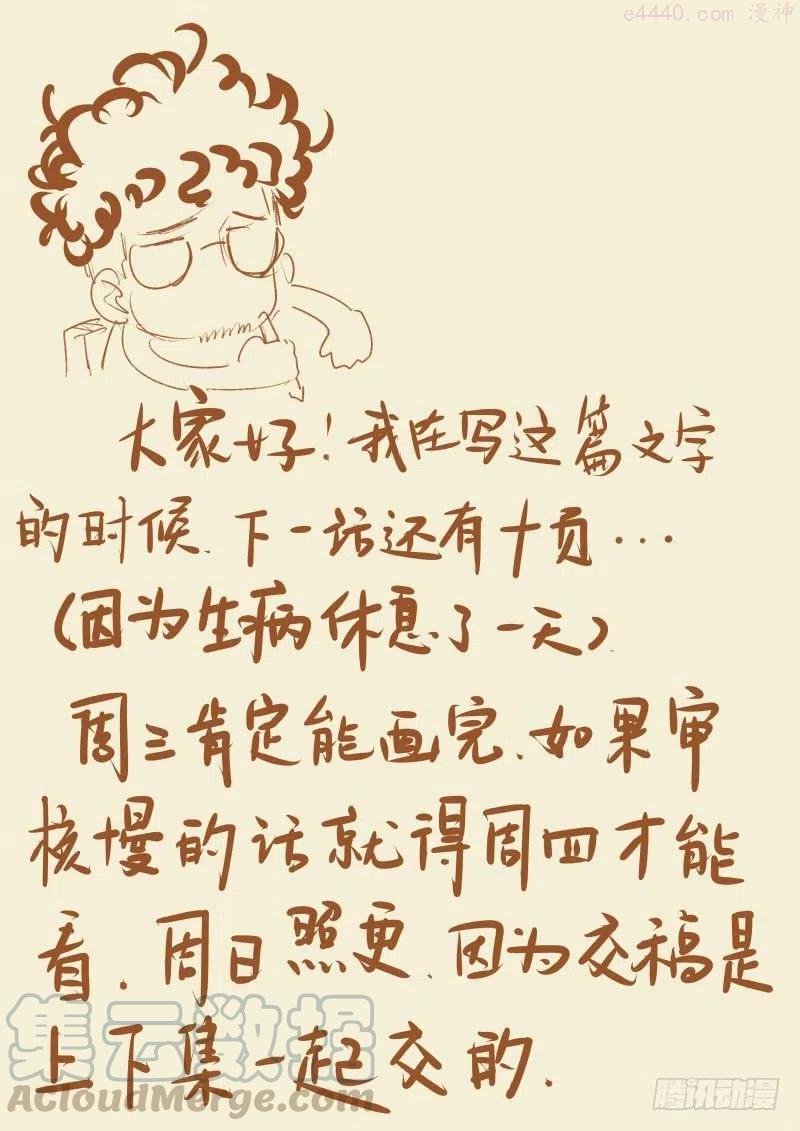 e4440.com 漫神
大家好！我在写这篇文字
的时候、下一话还有十页···
（因为生病休息了一天）.
周三肯定能画完、如果审
核慢的话就得周四才能
看．周日照更、因为交稿是
上下集一起交的．
集云数据
AcloudMerge.com
腾讯动漫